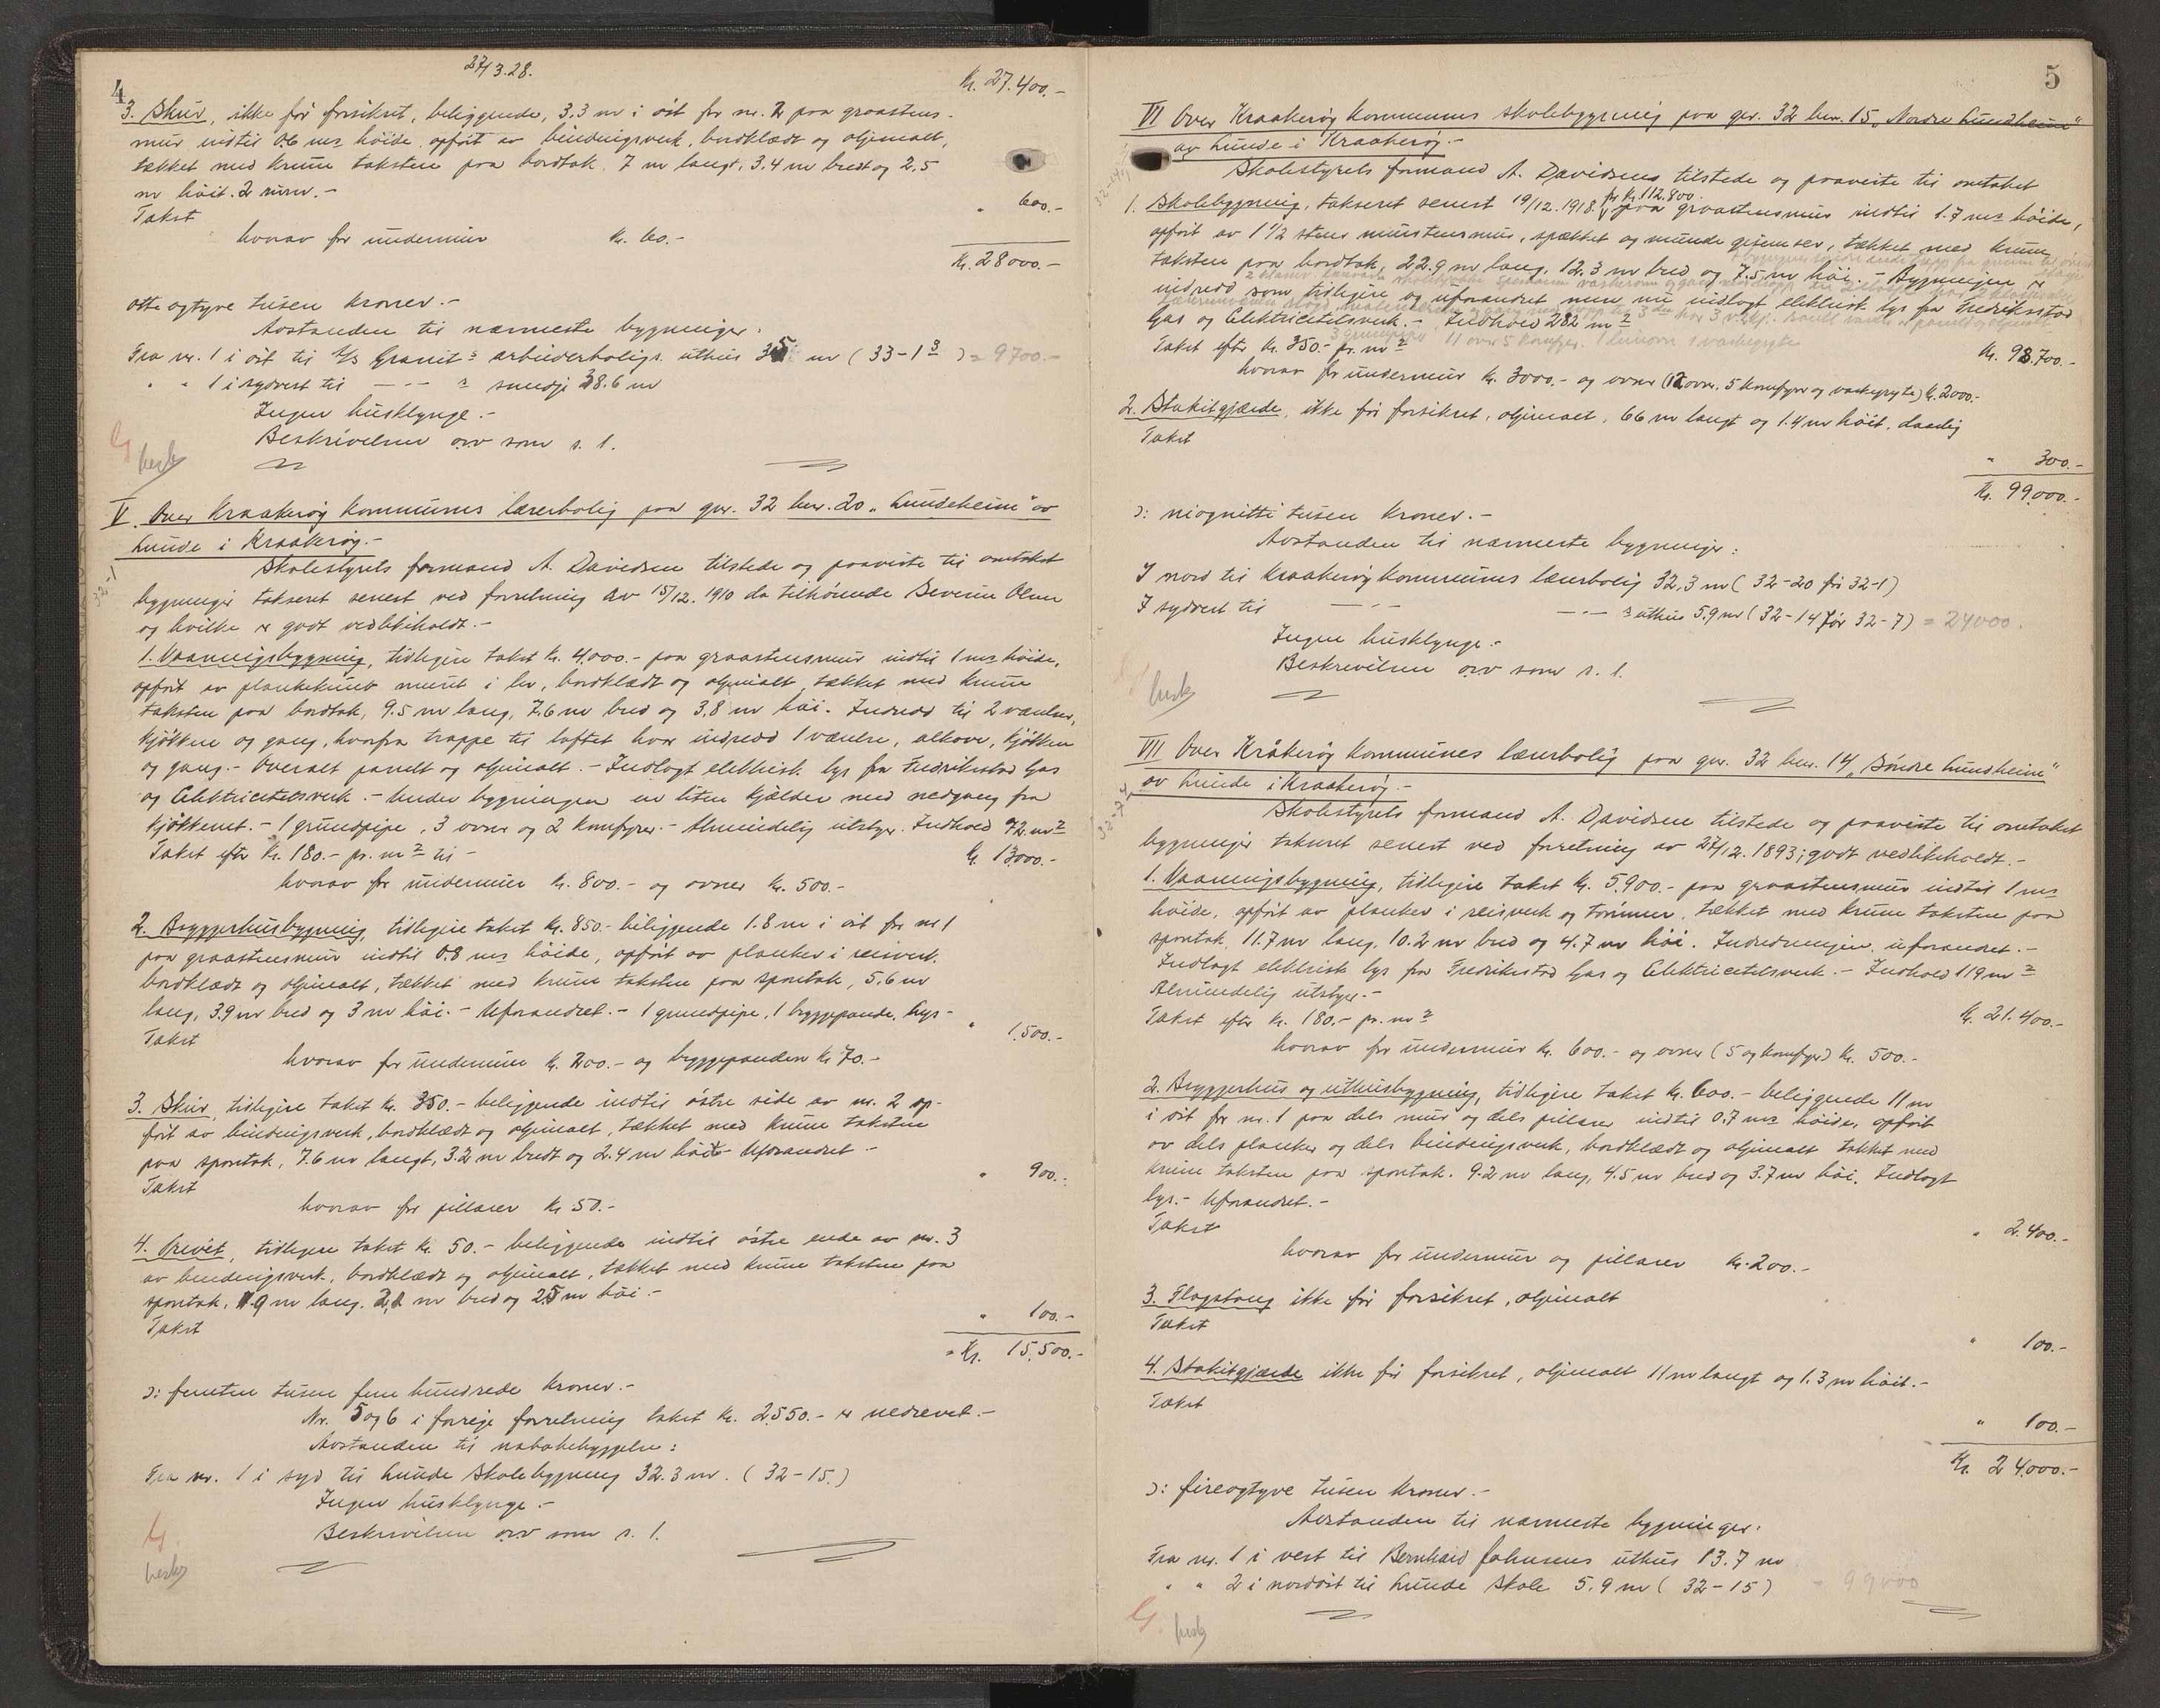 4
27/3.28.
Kr. 27.400.-
3. Skur, ikke før forsikret, beliggende, 3.3 m i øst for nr. 2 paa graastens-
mur indtil 0.6 ms høide, opført av bindingsverk, bordklædt og oljemalt,
tækket med krum taksten paa bordtak, 7 m langt, 3.4 m bredt og 2.5
m høit. 2 rum.-
Takst " 600.-
hvorav for undermur Kr. 60.-
Kr. 28000.-
otte og tyve tusen kroner.-
Avstanden til nærmeste bygninger:
Fra nr. 1 i øst til A/S Granit's arbeiderboligs uthus 35 m (33-1³) = 9700.-
" " 1 i sydvest til — " — s smedje 38.6 m
Ingen husklynge.-
Beskrivelsen o.s.v. som s. 1.
besk
V. Over Kraakerøy kommunes lærerbolig paa gnr. 32 bnr. 20 „Lundeheim" av
Lunde i Kraakerøy.-
32-1
Skolestyrets formand A. Davidsen tilstede og paaviste til omtakst
bygninger takseret senest ved forretning av 15/12. 1910 da tilhørende Severin Olsen
og hvilke er godt vedlikeholdt.-
1. Vaaningsbygning, tidligere takst Kr. 4,000.- paa graastensmur indtil 1 ms høide,
opført av plankekubb muret i ler, bordklædt og oljemalt, tækket med krum
taksten paa bordtak, 9.5 m lang, 7.6 m bred og 3,8 m høi. Indredd til 2 værelser,
kjøkken og gang, hvorfra trappe til loftet hvor indredd 1 værelse, alkove, kjøkken
og gang.- Overalt panelt og oljemalt.- Indlagt elektrisk lys fra Fredriksstad Gas
og Elektricitetsverk.- Under bygningen en liten kjælder med nedgang fra
kjøkkenet.- 1 grundpipe, 3 ovner og 2 komfyrer.- Almindelig utstyr. Indhold 72 m²
Takst efter Kr. 180.- pr. m² til - Kr. 13000.-
hvorav for undermur Kr. 800.- og ovner Kr. 500.-
2. Bryggerhusbygning, tidligere takst Kr. 850.- beliggende 1.8 m i øst for nr 1
paa graastensmur indtil 0.8 ms høide, opført av planker i reisverk,
bordklædt og oljemalt, tækket med krum taksten paa sponstak, 5.6 m
lang, 3.9 m bred og 3 m høi.- Uforandret.- 1 grundpipe, 1 bryggepande, lys-
Takst " 1,500.-
hvorav for undermur Kr. 200.- og bryggepanden Kr 70.-
3. Skur, tidligere takst Kr. 350.- beliggende indtil østre side av nr. 2 op-
ført av bindingsverk, bordklædt og oljemalt, tækket med krum taksten
paa sponstak, 7.6 m langt, 3.2 m bredt og 2.4 m høit- Uforandret.-
Takst " 900.-
hvorav for pillarer Kr 50.-
4. Privét, tidligere takst Kr. 50.- beliggende indtil østre ende av nr. 3
av bindingsverk, bordklædt og oljemalt, tækket med krum taksten paa
sponstak, 1.9 m lang, 2,1 m bred og 2.5 m høi.-
Takst " 100.-
Kr. 15,500.-
ɔ: femten tusen fem hundrede kroner.-
Nr. 5 og 6 i forrige forretning takst Kr. 2,550.- er nedrevet.-
Avstanden til nabobebyggelse:
Fra nr. 1 i syd til Lunde Skolebygning 32.3 m. (32-15.)
Ingen husklynge.-
Beskrivelsen o.s.v. som s. 1.
besk
5
VI Over Kraakerøy kommunes skolebygning paa gnr. 32 bnr. 15 „Nordre Lundheim"
av Lunde i Kraakerøy.-
Skolestyrets formand A. Davidsen tilstede og paaviste til omtakst
for Kr. 112.800.
1. Skolebygning, takseret senest 19/12.1918. paa graastensmur indtil 1.7 ms høide,
opført av 1 1/2 stens murstensmur, spækket og murede gesimser, tækket med krum
taksten paa bordtak, 22.9 m lang, 12.3 m bred og 7.5 m høi.- Bygningen er
indredd som tidligere og uforandret men nu indlagt elektrisk lys fra Fredriksstad
Gas og Elektricitetsverk.- Indhold 282 m²
Takst efter Kr. 350.- pr. m² Kr. 98.700.-
hvorav for undermur Kr. 3000.- og ovner (12 ovner, 5 komfyrer og vaskegryte) Kr. 2000.-
2. Stakitgjærde, ikke før forsikret, oljemalt, 66 m langt og 1.4 m høit, daarlig
Takst " 300.-
Kr. 99,000.-
ɔ: niognitti tusen kroner.-
Avstanden til nærmeste bygninger:
I nord til Kraakerøy kommunes lærerbolig 32,3 m (32-20 før 32-1)
I sydvest til — " — — " — s uthus 5.9 m (32-14 før 32-7) = 24000.
Ingen husklynge.-
Beskrivelsen o.s.v. som s. 1.
besk
VII Over Kråkerøy kommunes lærerbolig paa gnr. 32 bnr. 14 „Søndre Lundheim"
av Lunde i Kraakerøy.-
Skolestyrets formand A. Davidsen tilstede og paaviste til omtakst
bygninger takseret senest ved forretning av 27/12. 1893; godt vedlikeholdt.-
1. Vaaningsbygning, tidligere takst Kr. 5,900.- paa graastensmur indtil 1 ms
høide, opført av planker i reisverk og tømmer, tækket med krum taksten paa
sponstak, 11.7 m lang, 10.2 m bred og 4.7 m høi. Indredningen uforandret.-
Indlagt elektrisk lys fra Fredriksstad Gas og Elektricitetsverk.- Indhold 119 m²
Almindelig utstyr.-
Takst efter Kr. 180.- pr. m² Kr. 21.400.-
hvorav for undermur Kr. 600.- og ovner (5 og komfyr) Kr. 500.-
2. Bryggerhus og uthusbygning, tidligere takst Kr. 600.- beliggende 11 m
i øst for nr. 1 paa dels mur og dels pillarer indtil 0.7 ms høide, opført
av dels planker og dels bindingsverk, bordklædt og oljemalt tækket med
krum taksten paa sponstak. 9.2 m lang, 4.5 m bred og 3.7 m høi. Indlagt
lys.- Uforandret.-
Takst " 2.400.-
hvorav for undermur og pillarer Kr. 200.-
3. Flagstang ikke før forsikret, oljemalt
Takst " 100.-
4. Stakitgjærde ikke før forsikret, oljemalt 11 m langt og 1.3 m høit.-
Takst " 100.-
Kr. 24.000.-
ɔ: fireogtyve tusen kroner.-
Avstanden til nærmeste bygninger:
Fra nr. 1 i vest til Bernhard Johnsens uthus 13.7 m
" " 2 i nordøst til Lunde skole 5.9 m (32-15) = 99000
besk